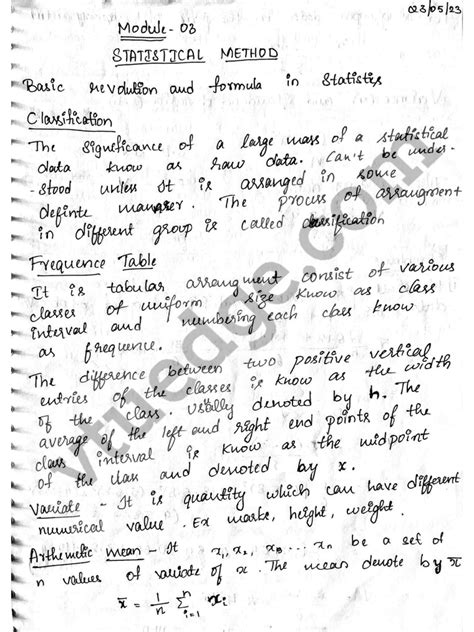 023/05/23
Module - 03
STATISTICAL METHOD
Basic revolution and formula in Statistics
Classification
The significance of a large mass of a statistical
data know as raw data. Can't be under-
-stood unless it is arranged in some
definte manner. The process of arrangment
in different group is called classification
Frequence Table
It is tabular arrangment consist of various
classes of uniform size know as class
interval and numbering each class know
as frequence.
The difference between two positive vertical
entries of the classes is know as the width
of the class. Usually denoted by h. The
average of the left and right end points of the
class interval is know as the midpoint
of the class and denoted by x.
Variate - It is quantity which can have different
numerical value. Ex marks, height, weight.
Arthemetic mean - It x₁, x₂, x₃ ... xₙ be a set of
n values of variate of x. The mean denote by x̄
x̄ = 1/n Σ xᵢ i=1 n
vtuedge.com